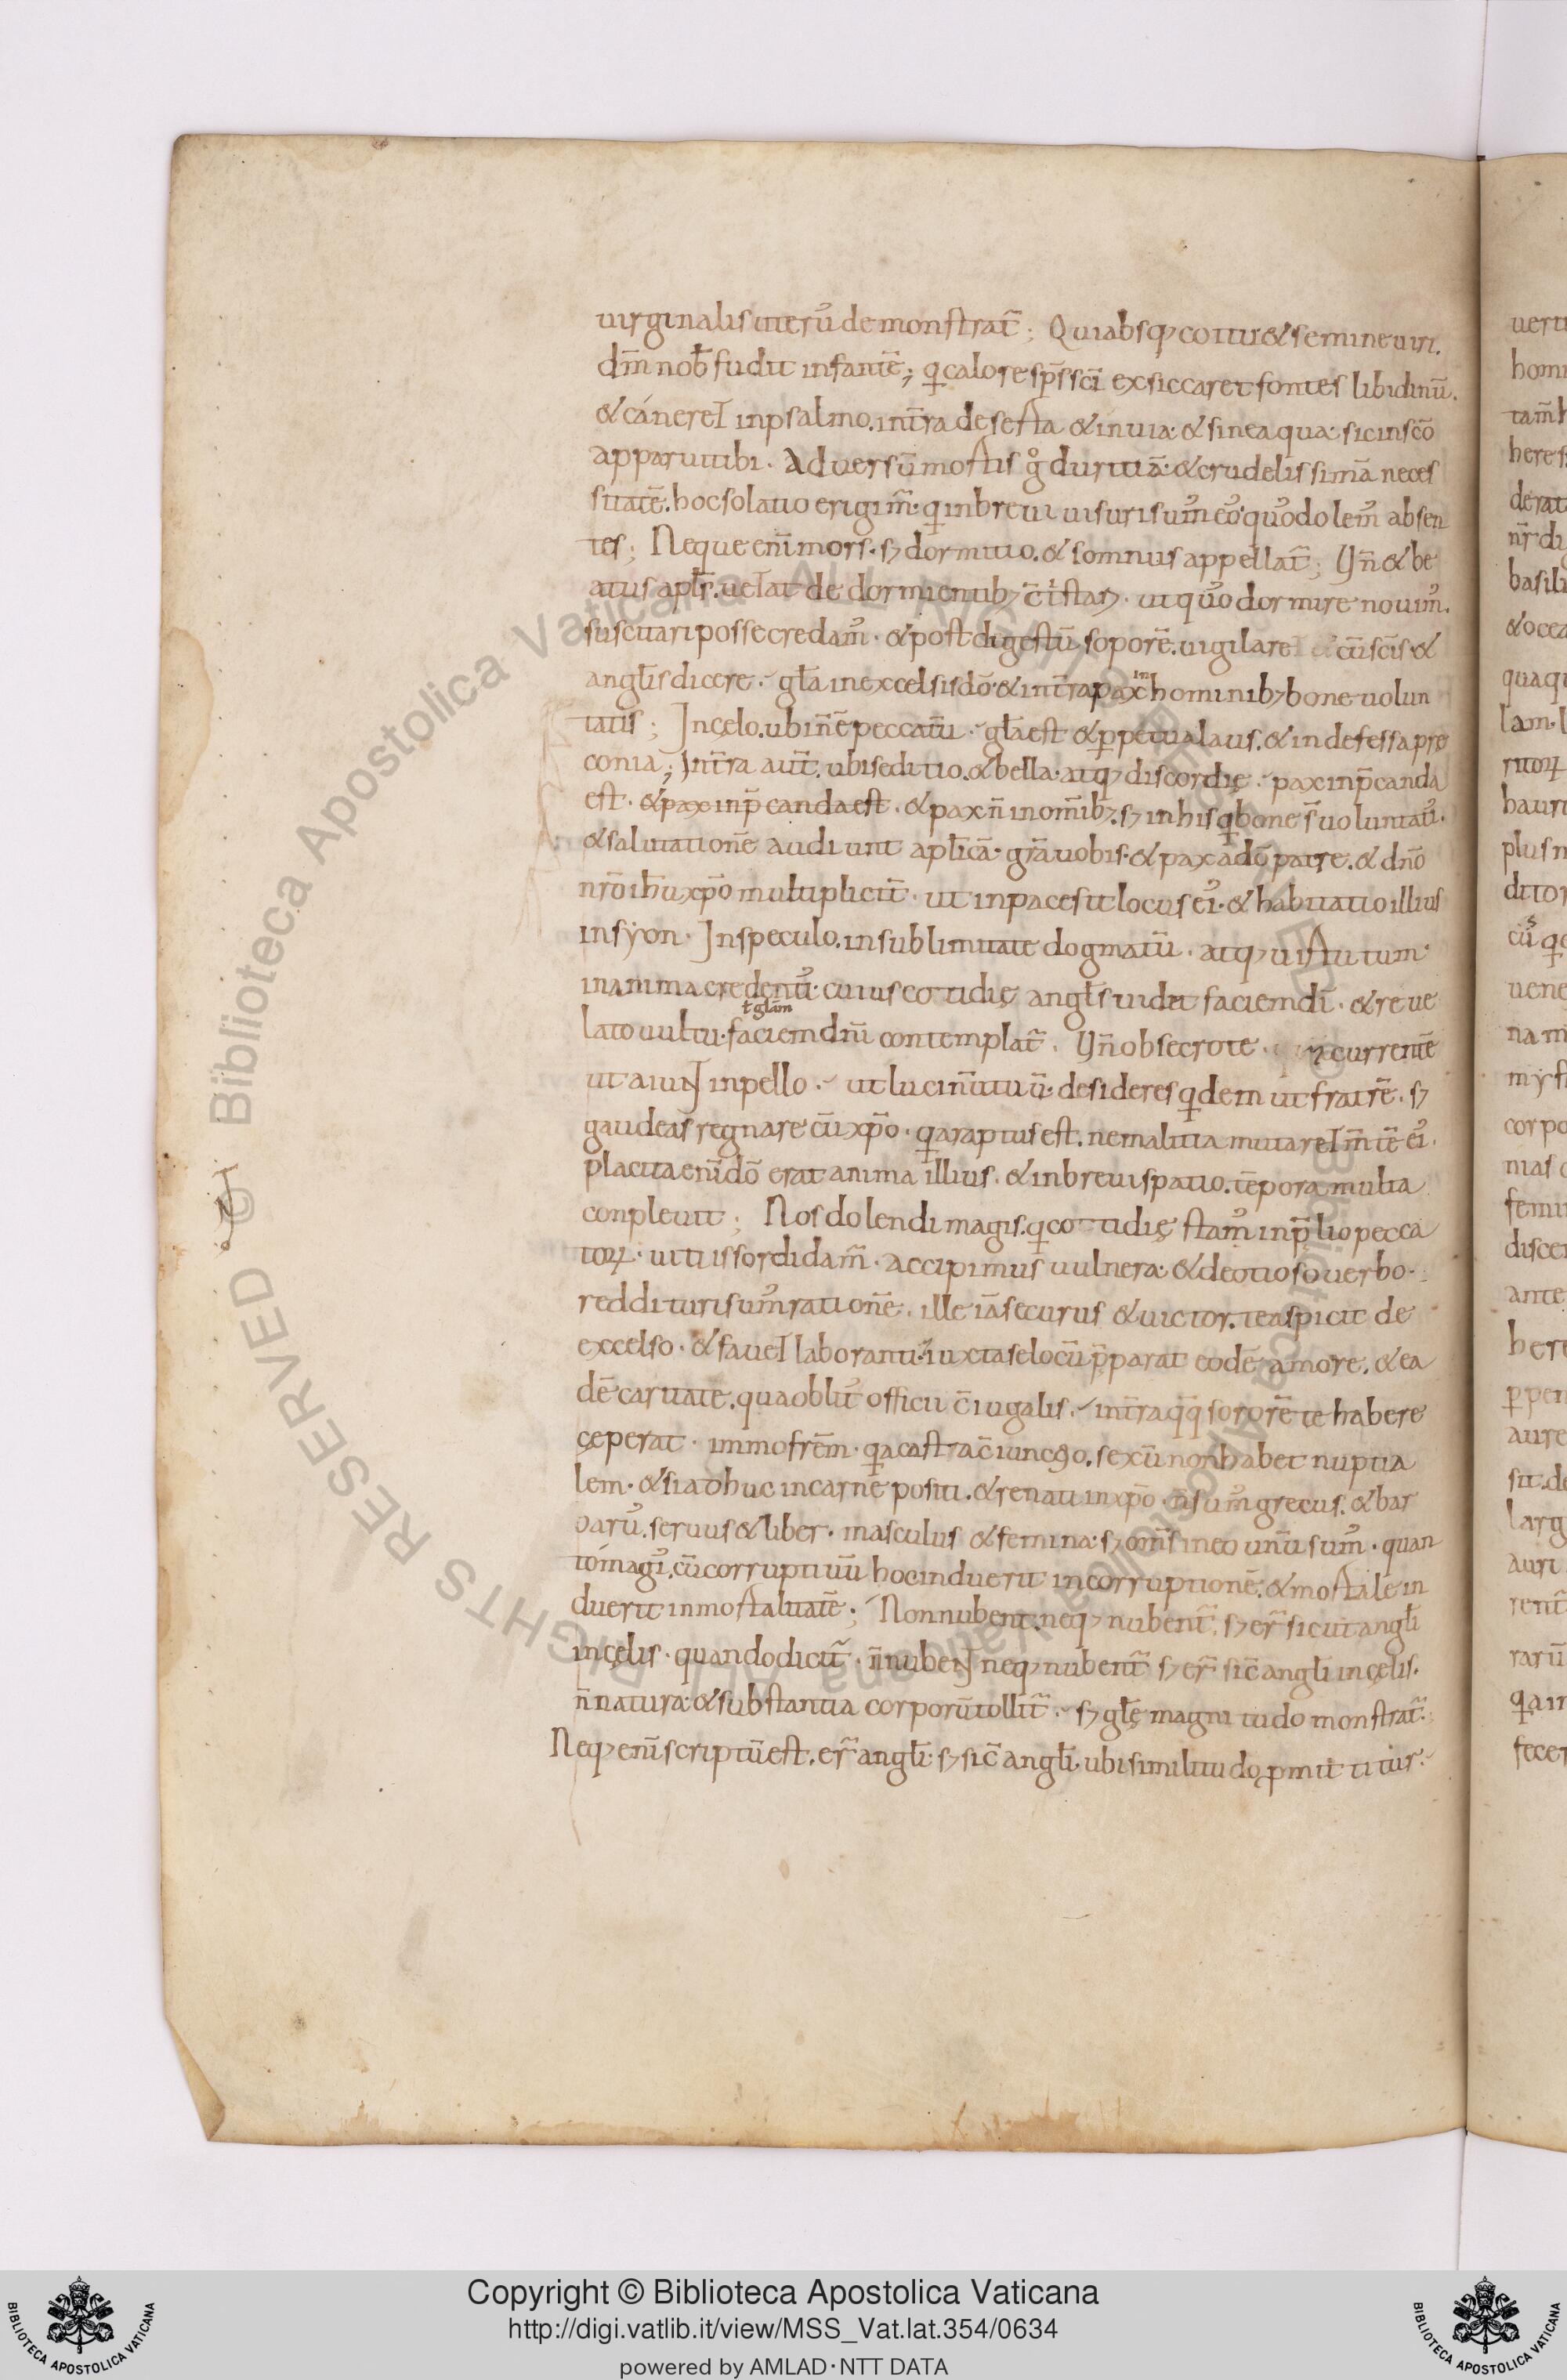 uirginalis uterũ demonstrat̃; Qui absq; coitu & semine uiri.
dm̃ nob̃ fudit infantẽ; q̢ calore sp̃s sc̃i exsiccaret fontes libidinũ.
& cáneret in psalmo. in t̃ra deserta & inuia. & sine aqua. sic in sc̃o
apparui tibi. Aduersũ mortis g̊ duritiã. & crudelissimã neces
sitatẽ. hoc solatio erigim̃. q̢ in breui uisuri sum̉ eo̓. quo̓ dolem̉ absen
tes; Neque enĩ mors. s; dormitio. & somnus appellat̃; Vñ & be
atus apl̃s. uetat de dormientib; c̃tristari. ut quo̓ dormire nouim̉.
suscitari posse credam̉. & post digestũ soporẽ. uigilare cũ sc̃is. &
angl̃is dicere. gl̃a in excelsis dõ. & in t̃ra pax in hominib; bone uolun
tatis; In cęlo. ubi ñ ẽ peccatũ. gl̃a est & ꝑpetua laus. & indefessa pre
conia; In t̃ra aut̃. ubi seditio. & bella. atq; discordię. pax inp̃canda
est. & pax inp̃canda est. & pax ñ in om̃ib;. s; in his q̢ bone s̃ uoluntati̓.
& salutationẽ audiunt apl̃icã. gr̃a uobis. & pax a dõ patre. & dñõ
nr̃o ih̃u xp̃o multiplicit̃. ut in pace sit locus ei̓. & habitatio illius
in syon. In speculo. in sublimitate dogmatũ. atq; uirtutum.
in anima credentiũ. cuius cottidię angl̃s uidet faciem dĩ. & reue
lato uultu. faciem dñĩ contemplat̃. Vñ obsecro te. currentẽ
ł gl̃am
ut aiunt inpello. ut lucinũ tuũ. desideres q̢dem ut fratrẽ. s;
gaudeas regnare cũ xp̃o. q̢a raptus est. ne malitia mutaret m̃tẽ ei̓.
placita enĩ dõ erat anima illius. & in breui spatio. tẽpora multa
conpleuit; Nos dolendi magis. q̢ cottidię stam̉ in p̃lio pecca
torꝝ. uitiis sordidam̃. accipimus uulnera. & de otioso uerbo.
reddituri sum̉ rationẽ. ille iã securus & uictor. te aspicit de
excelso. & fauet laboranti. & iuxta se locũ p̃parat eodẽ amore. & ea
dẽ caritate. qua oblit̓ officii c̃iugalis. in t̃ra q̃q̃ sororẽ te habere
cęperat. immo frẽm. q̢a casta c̃iunctio. sexũ non habet nuptia
lem. & si adhuc in carne positi. & renati in xp̃o. ñ sum̉ grecus. & bar
barũ. seruus & liber. masculus & femina. s; om̃s in eo unũ sum̉. quan
tó magi̓. cũ corruptiuũ hoc induerit incorruptionẽ. & mortale in
duerit inmortalitatẽ; Non nubent. neq; nubent̃. s; er̃ sicut angl̃i
in cęlis. quando dicit̃. ñ nubent neq; nubent̃ s; er̃ sic̃ angl̃i in cęlis.
ñ natura. & substantia corporũ tollit̃. s; gl̃ę magnitudo monstrat̃.
Neq; enĩ scriptũ est. er̃ angl̃i. s; sic̃ angl̃i. ubi similitudo ꝓmittitur.
uertu
homi
tam̃ h
heres
derat
nr̃ di
basili
& ocea
qua qu
lam. l
ritorꝝ
hauri
plus n
ditor
cũ q̢
uene
nam
mysti
corpo
nias
femin
disce
ante
here
ꝑpen
aure
sit. de
larg
auri
rent̃
rarũ
q̢a in
fecer
© Biblioteca Apostolica Vaticana ALL RIGHTS RESERVED
© Biblioteca Apostolica Vaticana ALL RIGHTS RESERVED
BIBLIOTECA APOSTOLICA VATICANA
Copyright © Biblioteca Apostolica Vaticana
http://digi.vatlib.it/view/MSS_Vat.lat.354/0634
powered by AMLAD·NTT DATA
BIBLIOTECA APOSTOLICA VATICANA